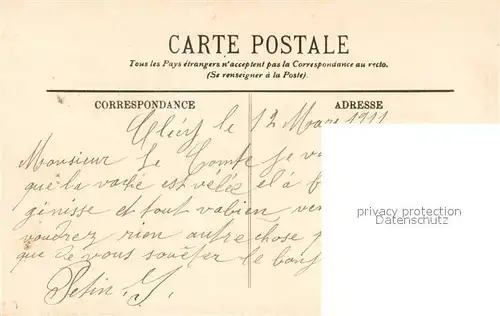 CARTE POSTALE
Tous les Pays étrangers n'acceptent pas la Correspondance au recto.
(Se renseigner à la Poste).
CORRESPONDANCE
ADRESSE
le 12 Mars 1911
Monsieur Le Comte je
que la vache est vélée et à
génisse et tout vabien
voudrez rien autre chose
que de vous souèter le bonj
privacy protection
Datenschutz